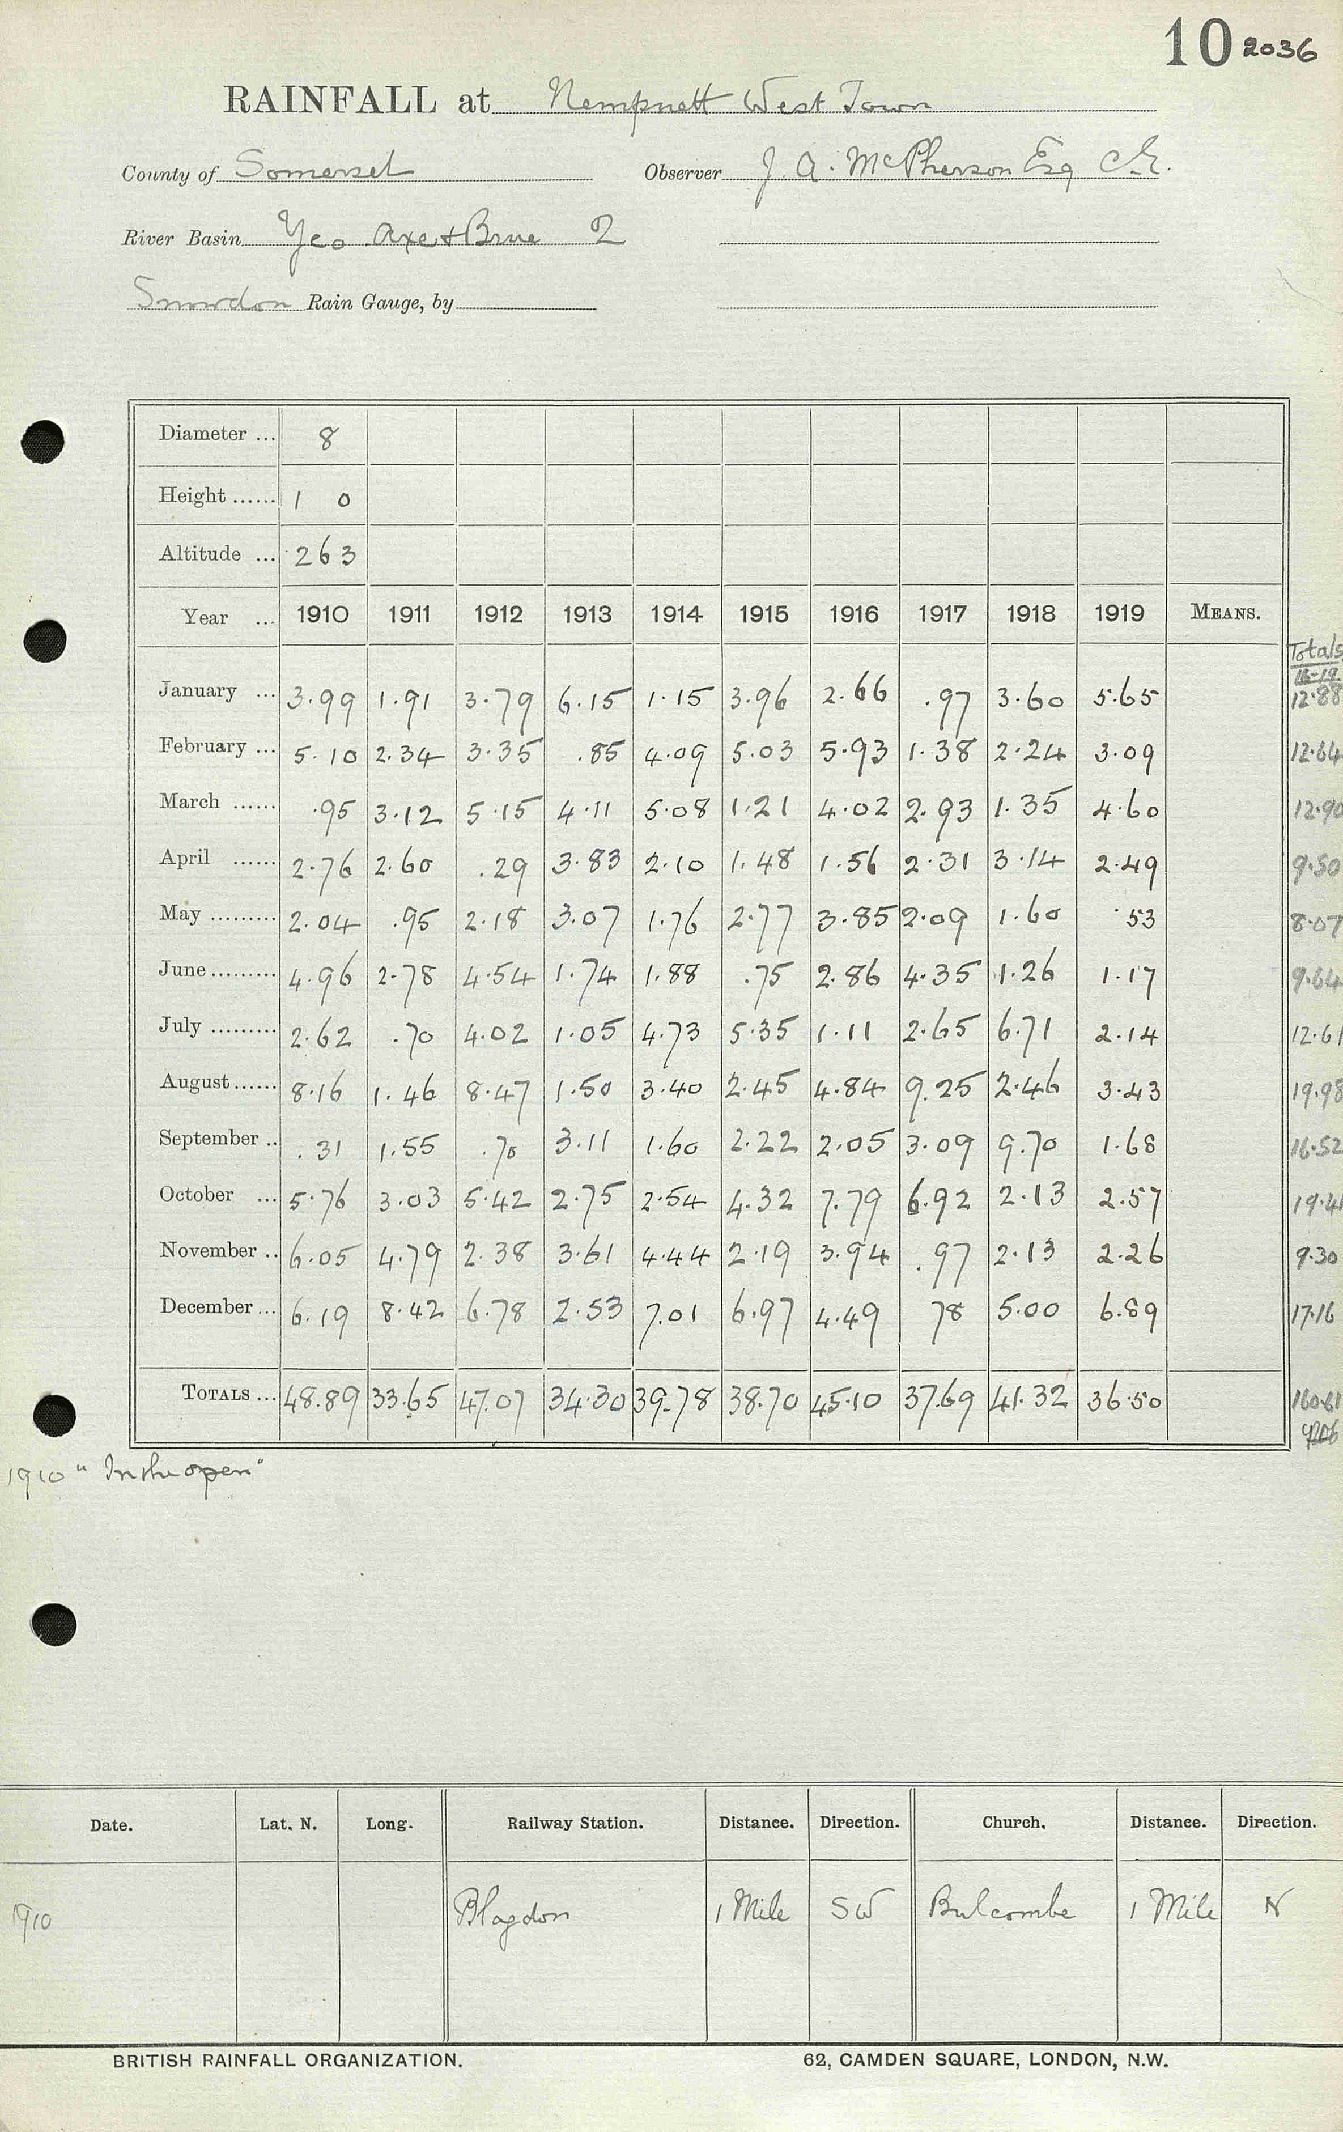 10 2036
RAINFALL at Nempnett West Town
County of Somerset Observer J. A. McPherson Esq C.E.
River Basin Yeo Axe & Brue 2
Snowdon Rain Gauge, by
Diameter ... 8
Height ...... 1 0
Altitude ... 263
Year ... 1910 1911 1912 1913 1914 1915 1916 1917 1918 1919 MEANS.
Totals
16-19
January ... 3.99 1.91 3.79 6.15 1.15 3.96 2.66 .97 3.60 5.65 12.88
February ... 5.10 2.34 3.35 .85 4.09 5.03 5.93 1.38 2.24 3.09 12.64
March ...... .95 3.12 5.15 4.11 5.08 1.21 4.02 2.93 1.35 4.60 12.90
April ...... 2.76 2.60 .29 3.83 2.10 1.48 1.56 2.31 3.14 2.49 9.50
May ......... 2.04 .95 2.18 3.07 1.76 2.77 3.85 2.09 1.60 .53 8.07
June ......... 4.96 2.78 4.54 1.74 1.88 .75 2.86 4.35 1.26 1.17 9.64
July ......... 2.62 .70 4.02 1.05 4.73 5.35 1.11 2.65 6.71 2.14 12.61
August ...... 8.16 1.46 8.47 1.50 3.40 2.45 4.84 9.25 2.46 3.43 19.98
September .. .31 1.55 .70 3.11 1.60 2.22 2.05 3.09 9.70 1.68 16.52
October ... 5.76 3.03 5.42 2.75 2.54 4.32 7.79 6.92 2.13 2.57 19.41
November .. 6.05 4.79 2.38 3.61 4.44 2.19 3.94 .97 2.13 2.26 9.30
December ... 6.19 8.42 6.78 2.53 7.01 6.97 4.49 78 5.00 6.89 17.16
TOTALS ... 48.89 33.65 47.07 34.30 39.78 38.70 45.10 37.69 41.32 36.50 160.61
1910 "In the open"
Date. Lat. N. Long. Railway Station. Distance. Direction. Church. Distance. Direction.
1910 Blagdon 1 Mile SW Bulcombe 1 Mile N
BRITISH RAINFALL ORGANIZATION. 62, CAMDEN SQUARE, LONDON, N.W.